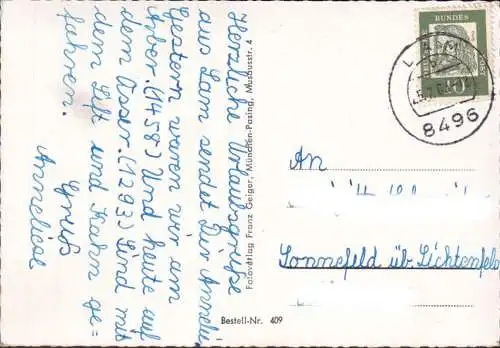 Herzliche Urlaubsgrüße
aus Lam sendet Dir Annelie.
Gestern waren wir am
Arber. (1458) Und heute auf
dem Osser. (1293) Sind mit
dem Lift und Kahn ge=
fahren.
Gruß
Anneliese
Fotoverlag Franz Geiger, München-Pasing, Musäusstr. 4
Bestell-Nr. 409
BUNDES
LAM
8496
An
Sonnefeld üb. Lichtenfels